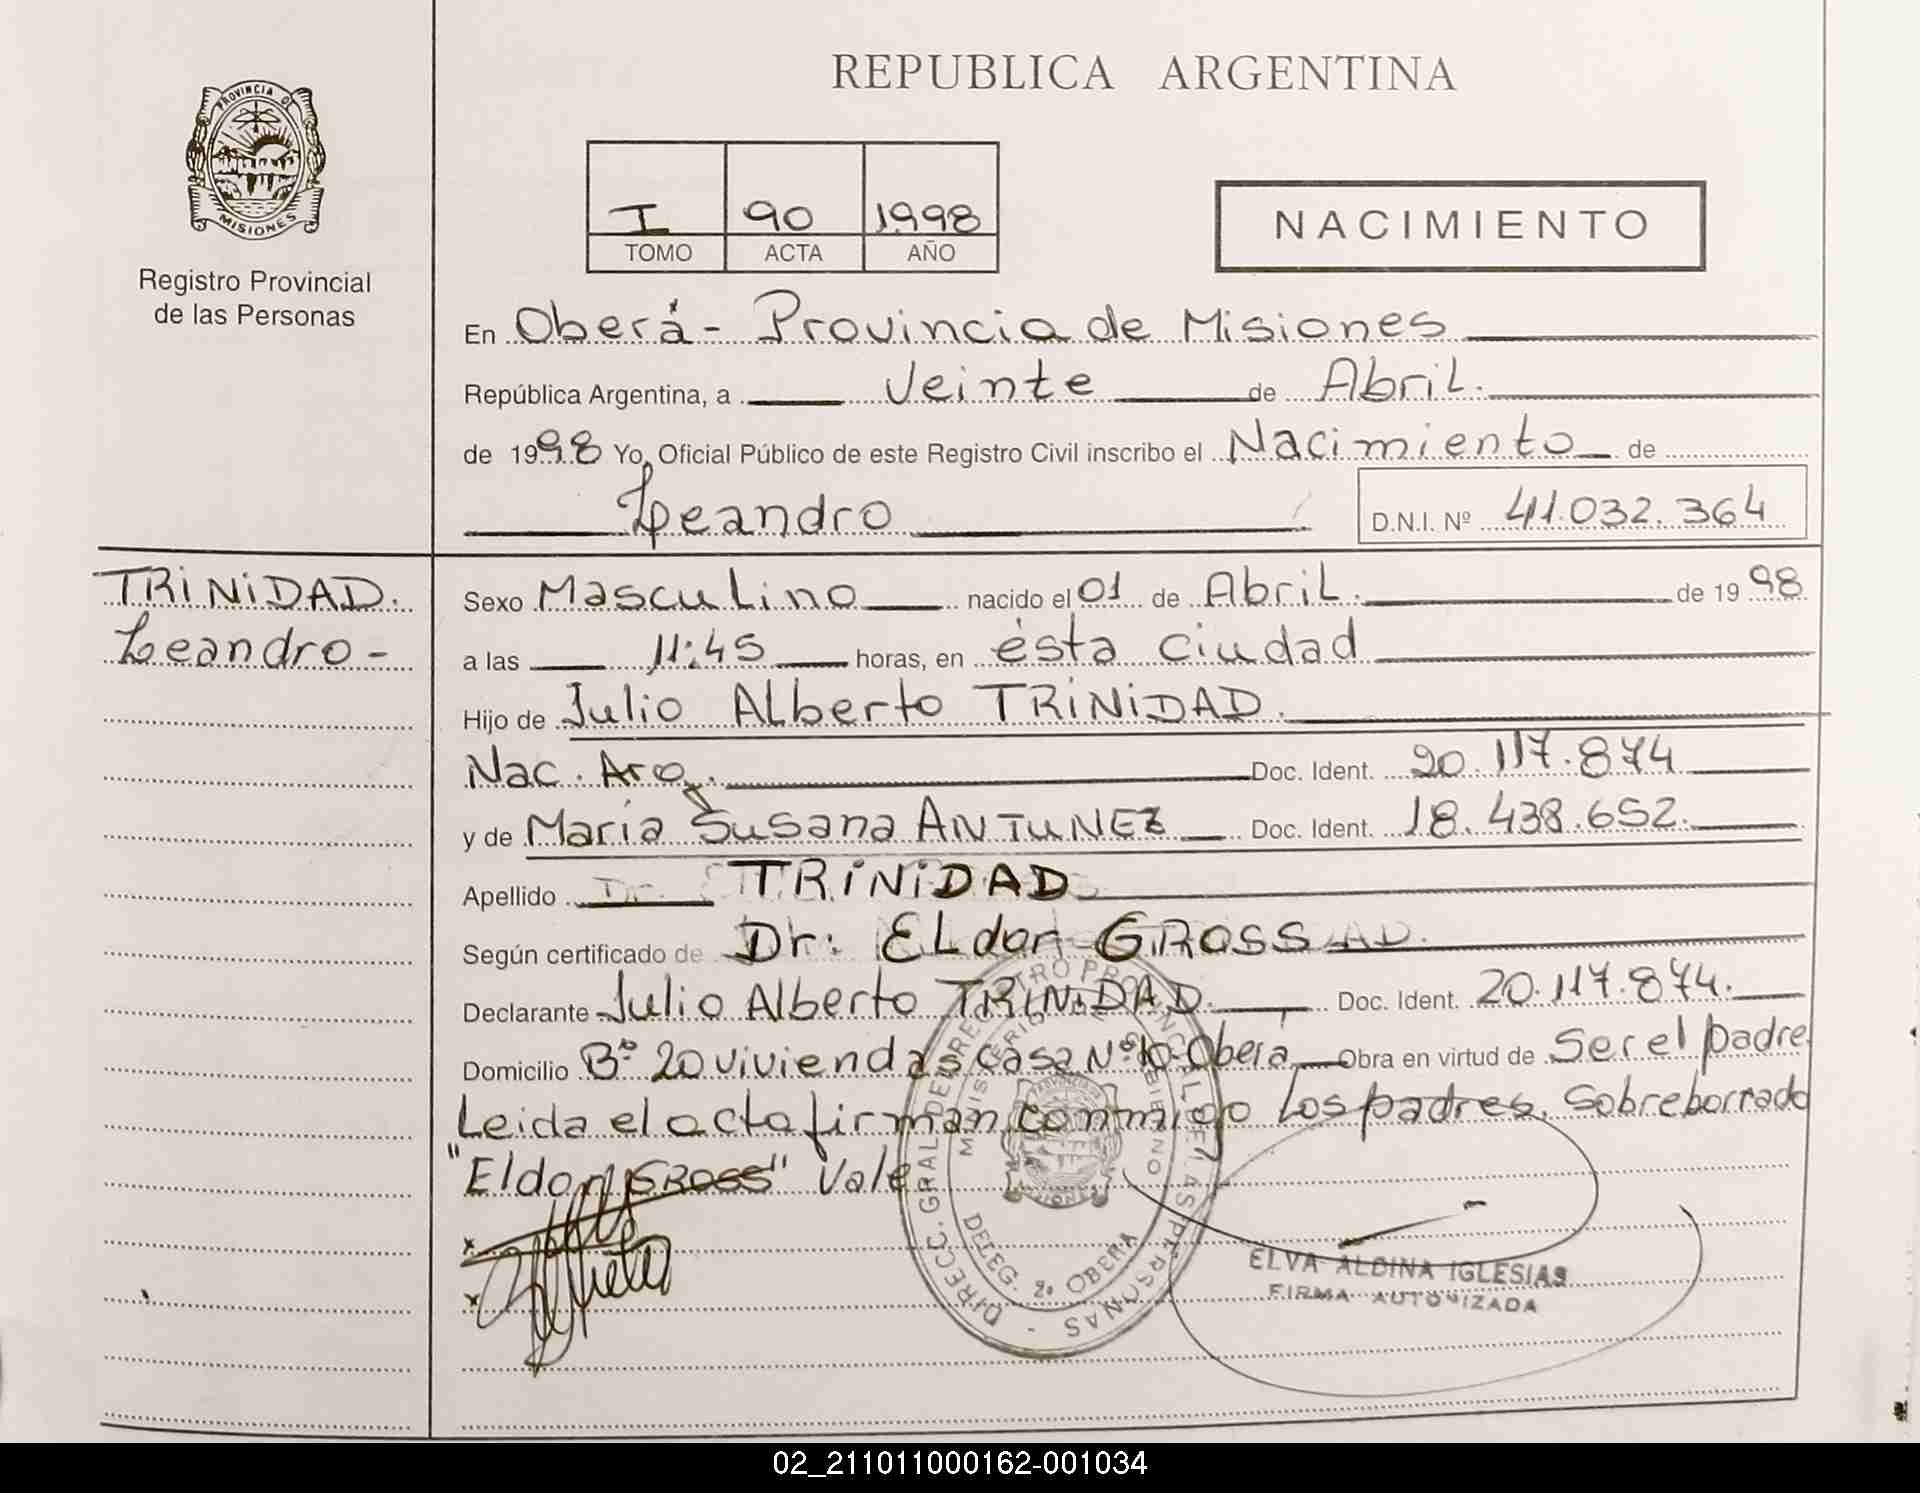 PROVINCIA DE
MISIONES
Registro Provincial
de las Personas
REPUBLICA ARGENTINA
I 90 1998
TOMO ACTA AÑO
NACIMIENTO
En Oberá - Provincia de Misiones
República Argentina, a Veinte de Abril.
de 1998 Yo, Oficial Público de este Registro Civil inscribo el Nacimiento de
Leandro D.N.I. Nº 41.032.364
TRINIDAD.
Leandro -
Sexo Masculino nacido el 01 de Abril. de 1998
a las 11:45 horas, en ésta ciudad
Hijo de Julio Alberto TRINIDAD.
Nac. Arg. Doc. Ident. 20.117.874
y de María Susana ANTUNEZ Doc. Ident. 18.438.652.
Apellido TRINIDAD
Según certificado de Dr: ELdor GROSS
Declarante Julio Alberto TRINIDAD. Doc. Ident. 20.117.874.
Domicilio Bº 20 viviendas casa Nº 10-Oberá, Obra en virtud de Ser el padre
Leida el acta firman conmigo Los padres. Sobreborrado
"Eldor GROSS" Vale
DIRECC. GRAL. DE REGISTRO PROVINCIAL DE LAS PERSONAS -
MINISTERIO DE GOBIERNO
DELEG. 2º OBERA
ELVA ALDINA IGLESIAS
FIRMA AUTORIZADA
02_211011000162-001034